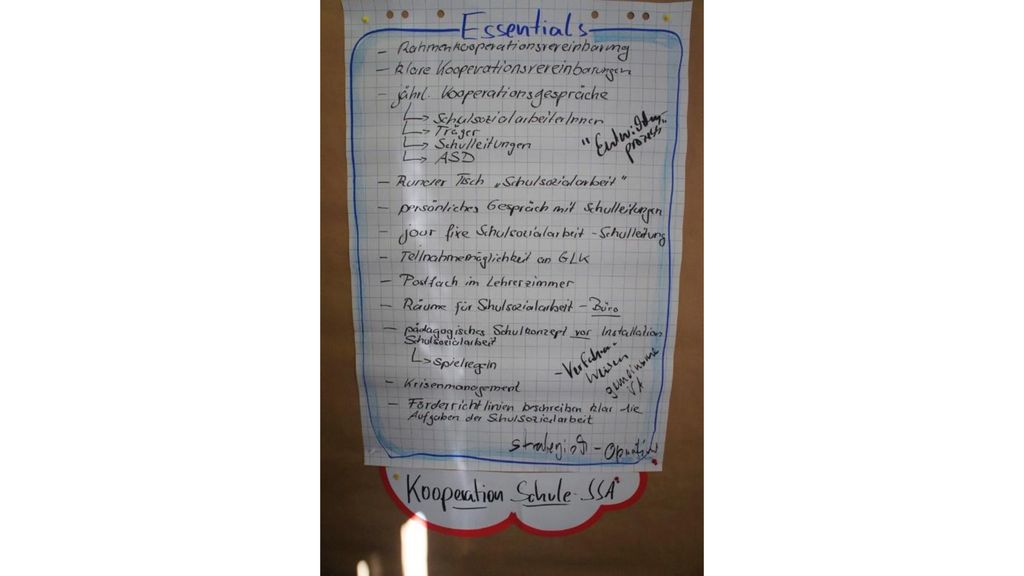 Essentials
- Rahmenkooperationsvereinbarung
- klare Kooperationsvereinbarungen
- jährl. Kooperationsgespräche
↳ SchulsozialarbeiterInnen
↳ Träger
↳ Schulleitungen
↳ ASD
"Entwicklungs-
prozess
- Runder Tisch „Schulsozialarbeit"
- persönliches Gespräch mit Schulleitungen
- jour fixe Schulsozialarbeit - Schulleitung
- Teilnahmemöglichkeit an GLK
- Postfach im Lehrerzimmer
- Räume für Schulsozialarbeit - Büro
- pädagogisches Schulkonzept vor Installation
Schulsozialarbeit
↳ Spielregeln
- Verfahrens-
weisen
gemeinsame
- Krisenmanagement
- Förderrichtlinien beschreiben klar die
Aufgaben der Schulsozialarbeit
strategisch - operativ
Kooperation Schule-SSA